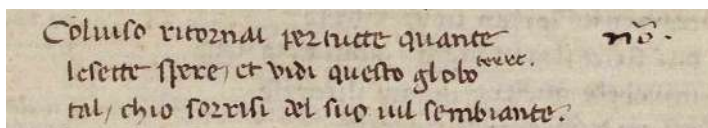 Col uiso ritornai per tucte quante nō.
le sette spere, et uidi questo globo terre.
tal, chio sorrisi del suo uil sembiante.